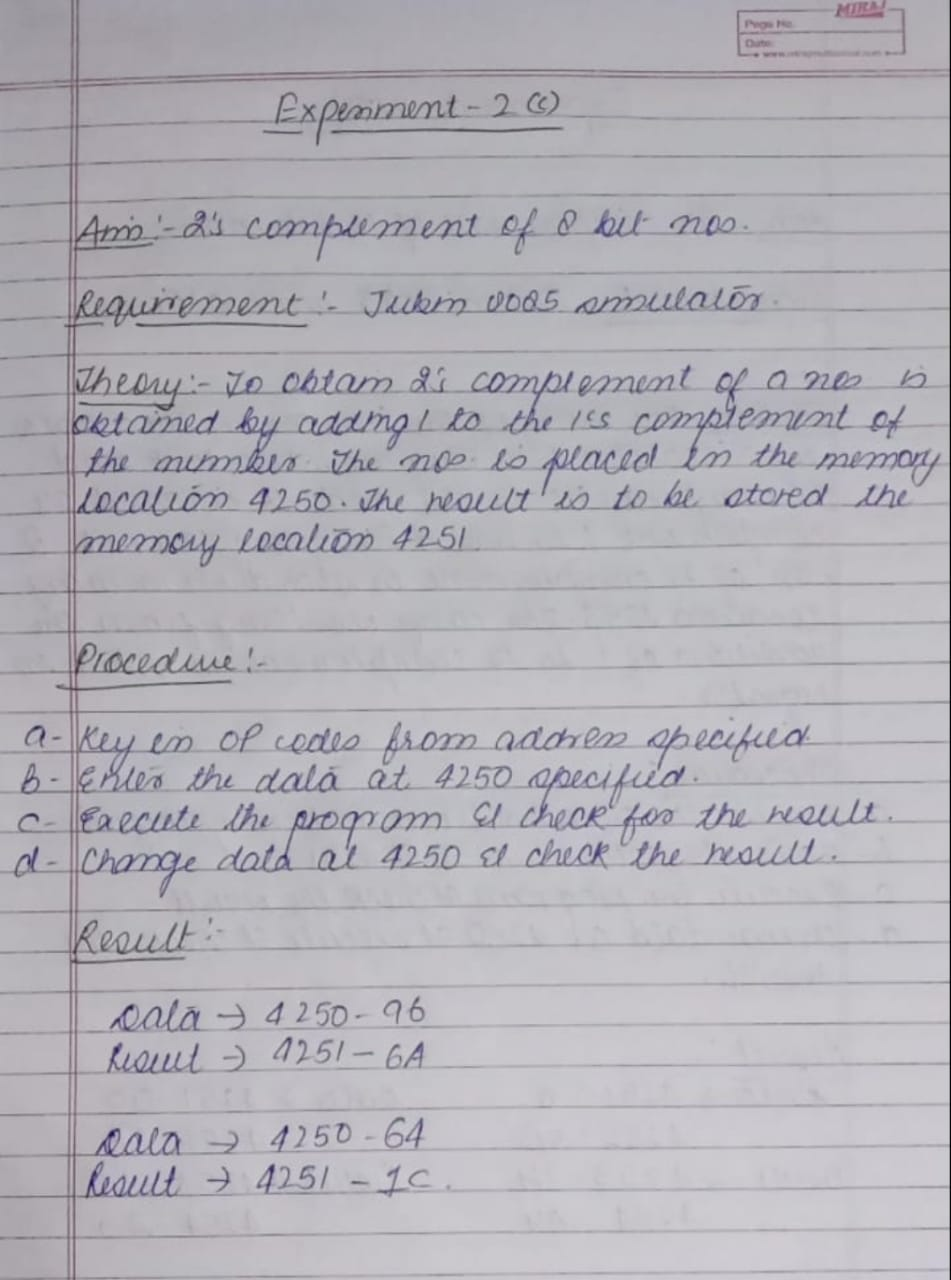 MIRAJ
Page No.
Date:
Experiment - 2 (c)
Aim :- 2's complement of 8 bit nos.
Requirement :- Jubin 8085 simulator.
Theory:- To obtain 2's complement of a nos is
obtained by adding 1 to the 1's complement of
the number. The nos. is placed in the memory
location 4250. The result is to be stored the
memory location 4251
Procedure :-
a- Key in OP codes from address specified
b- Enter the data at 4250 specified.
c- Execute the program & check for the result.
d- Change data at 4250 & check the result.
Result :-
Data → 4250 - 96
Result → 4251 - 6A
Data → 4250 - 64
Result → 4251 - 1C.